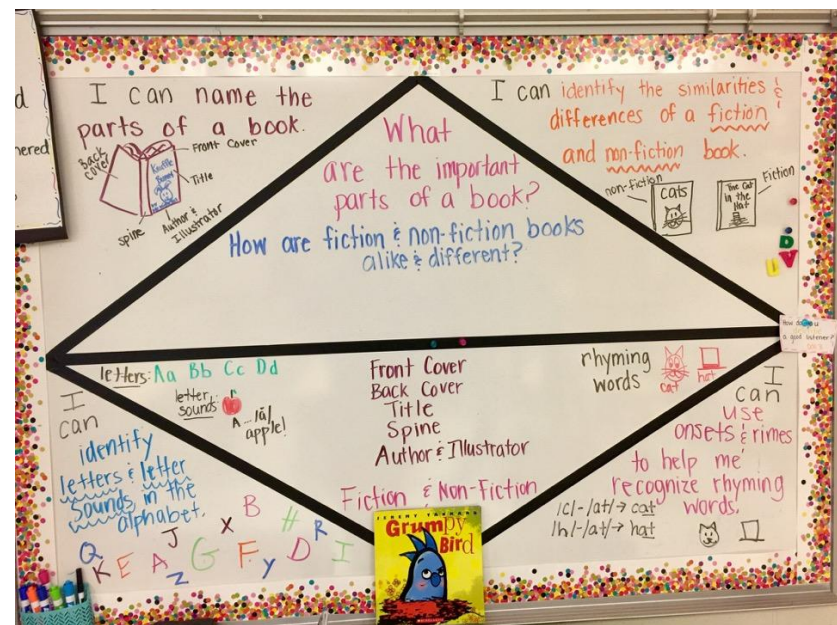 d
ered
I can name the
parts of a book.
Back
cover
Front Cover
Title
Author &
Illustrator
spine
Knuffle
Bunny
What
are the important
parts of a book?
How are fiction & non-fiction books
alike & different?
I can identify the similarities &
differences of a fiction
and non-fiction book.
non-fiction
Cats
The Cat
In the
Hat
Fiction
D
V
letters: Aa Bb Cc Dd
letter
sounds:
A.../ă/
apple!
I
can
identify
letters & letter
sounds in the
alphabet.
B
X
H
J
R
Q
K
E
A
Z
G
F
Y
D
I
Front Cover
Back Cover
Title
Spine
Author & Illustrator
Fiction & Non-Fiction
JEREMY TANKARD
Grumpy
Bird
SCHOLASTIC
rhyming
words
cat
hat
I
can
use
onsets & rimes
to help me
recognize rhyming
words.
/c/-/at/→ cat
/h/-/at/→ hat
a good listener?